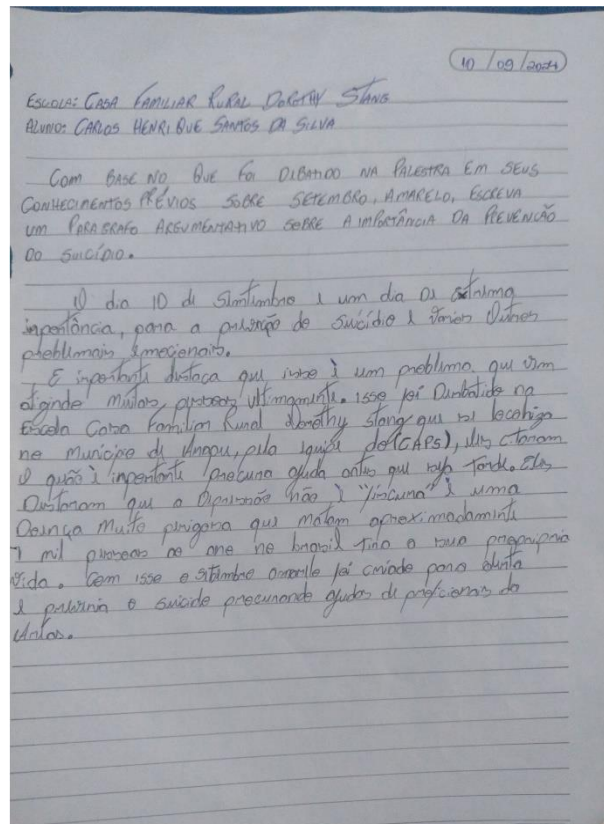 10 / 09 / 2024
ESCOLA: CASA FAMILIAR RURAL DOROTHY STANG
ALUNO: CARLOS HENRIQUE SANTOS DA SILVA
COM BASE NO QUE FOI DEBATIDO NA PALESTRA EM SEUS
CONHECIMENTOS PRÉVIOS SOBRE SETEMBRO, AMARELO, ESCREVA
UM PARAGRAFO ARGUMENTATIVO SOBRE A IMPORTÂNCIA DA PREVENÇÃO
DO SUICÍDIO.
O dia 10 de é um dia de
inportância, para a de suicídio e Outros
problemais emocionais.
E inportante destaca que isso è um problema que vem
atginde muitas pessoas ultimamente. isse foi na
Escola Casa Familiar Rural Dorothy Stang que se
no Municipe de Anapu, pela equipe do (CAPs), eles citaram
O quão è inportante precura ajuda antes que seja tarde. Eles
que a Depressão não è "frescura" è uma
Doença Muito perigosa que matam aproximadamente
mil pessoas ao ano no brasil tira a sua
Vida. Com isse o amarelo foi criado para
e o suicide precurando ajudas de da